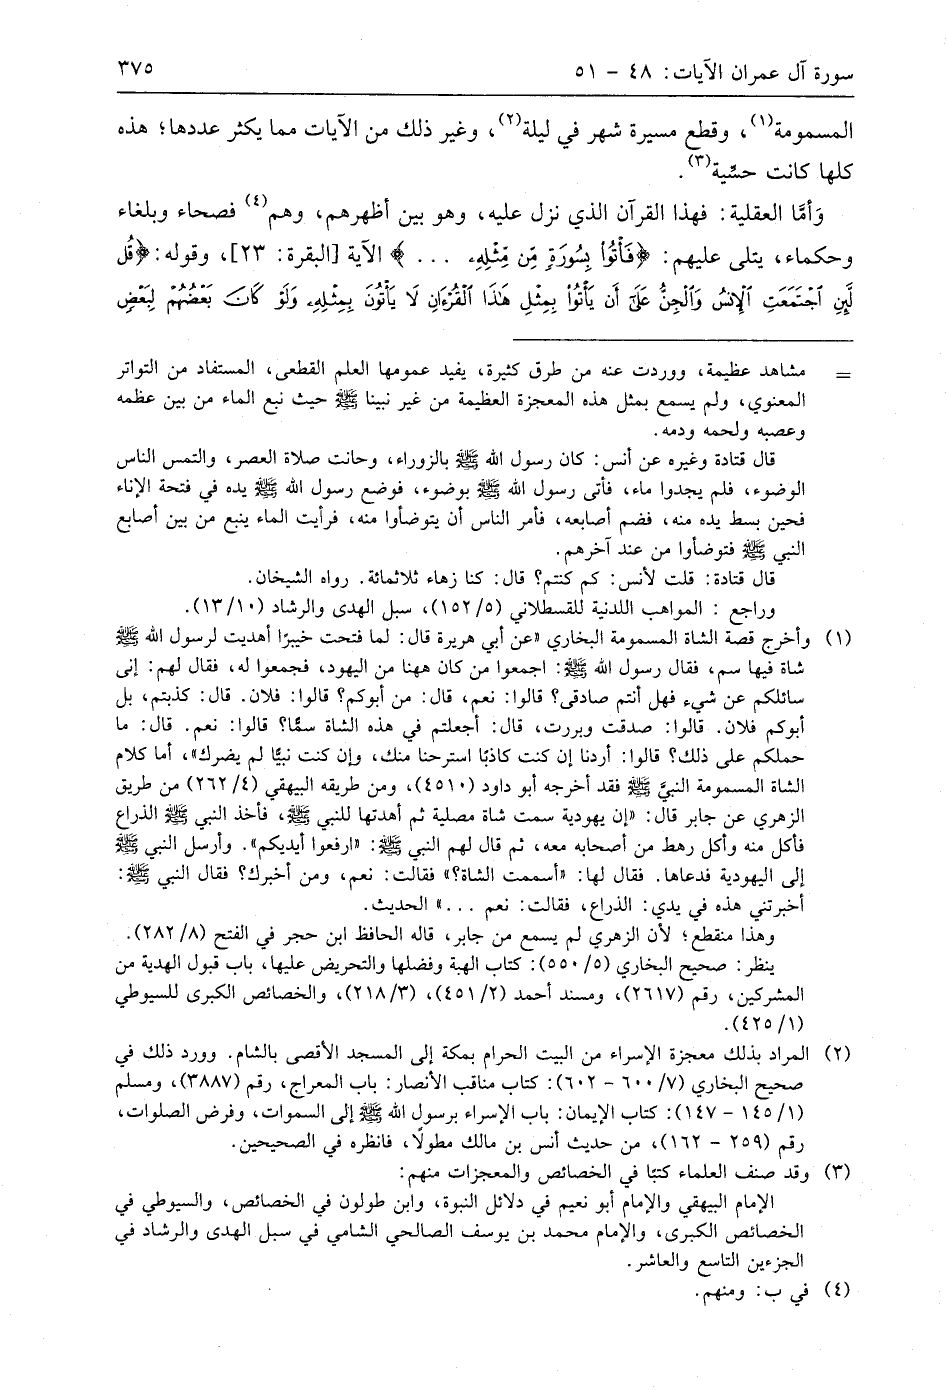 سورة آل عمران الآيات: ٤٨ - ٥١
٣٧٥
المسمومة(١)، وقطع مسيرة شهر في ليلة(٢)، وغير ذلك من الآيات مما يكثر عددها؛ هذه
كلها كانت حسِّية(٣).
وَأمَّا العقلية: فهذا القرآن الذي نزل عليه، وهو بين أظهرهم، وهم(٤) فصحاء وبلغاء
وحكماء، يتلى عليهم: ﴿فَأْتُوا۟ بِسُورَةٍ مِّن مِّثْلِهِۦ ...﴾ الآية [البقرة: ٢٣]، وقوله: ﴿قُل
لَّئِنِ ٱجْتَمَعَتِ ٱلْإِنسُ وَٱلْجِنُّ عَلَىٰٓ أَن يَأْتُوا۟ بِمِثْلِ هَٰذَا ٱلْقُرْءَانِ لَا يَأْتُونَ بِمِثْلِهِۦ وَلَوْ كَانَ بَعْضُهُمْ لِبَعْضٍ
= مشاهد عظيمة، ووردت عنه من طرق كثيرة، يفيد عمومها العلم القطعى، المستفاد من التواتر
المعنوي، ولم يسمع بمثل هذه المعجزة العظيمة من غير نبينا ﷺ حيث نبع الماء من بين عظمه
وعصبه ولحمه ودمه.
قال قتادة وغيره عن أنس: كان رسول الله ﷺ بالزوراء، وحانت صلاة العصر، والتمس الناس
الوضوء، فلم يجدوا ماء، فأتى رسول الله ﷺ بوضوء، فوضع رسول الله ﷺ يده في فتحة الإناء
فحين بسط يده منه، فضم أصابعه، فأمر الناس أن يتوضأوا منه، فرأيت الماء ينبع من بين أصابع
النبي ﷺ فتوضأوا من عند آخرهم.
قال قتادة: قلت لأنس: كم كنتم؟ قال: كنا زهاء ثلاثمائة. رواه الشيخان.
وراجع : المواهب اللدنية للقسطلاني (١٥٢/٥)، سبل الهدى والرشاد (١٣/١٠).
(١) وأخرج قصة الشاة المسمومة البخاري «عن أبي هريرة قال: لما فتحت خيبرًا أهديت لرسول الله ﷺ
شاة فيها سم، فقال رسول الله ﷺ: اجمعوا من كان ههنا من اليهود، فجمعوا له، فقال لهم: إنى
سائلكم عن شيء فهل أنتم صادقى؟ قالوا: نعم، قال: من أبوكم؟ قالوا: فلان. قال: كذبتم، بل
أبوكم فلان. قالوا: صدقت وبررت، قال: أجعلتم في هذه الشاة سمًّا؟ قالوا: نعم. قال: ما
حملكم على ذلك؟ قالوا: أردنا إن كنت كاذبًا استرحنا منك، وإن كنت نبيًّا لم يضرك»، أما كلام
الشاة المسمومة النبيَّ ﷺ فقد أخرجه أبو داود (٤٥١٠)، ومن طريقه البيهقي (٢٦٢/٤) من طريق
الزهري عن جابر قال: «إن يهودية سمت شاة مصلية ثم أهدتها للنبي ﷺ، فأخذ النبي ﷺ الذراع
فأكل منه وأكل رهط من أصحابه معه، ثم قال لهم النبي ﷺ: «ارفعوا أيديكم». وأرسل النبي ﷺ
إلى اليهودية فدعاها. فقال لها: «أسممت الشاة؟» فقالت: نعم، ومن أخبرك؟ فقال النبي ﷺ:
أخبرتني هذه في يدي: الذراع، فقالت: نعم ...» الحديث.
وهذا منقطع؛ لأن الزهري لم يسمع من جابر، قاله الحافظ ابن حجر في الفتح (٢٨٢/٨).
ينظر: صحيح البخاري (٥٥٠/٥): كتاب الهبة وفضلها والتحريض عليها، باب قبول الهدية من
المشركين، رقم (٢٦١٧)، ومسند أحمد (٤٥١/٢)، (٢١٨/٣)، والخصائص الكبرى للسيوطي
(٤٢٥/١).
(٢) المراد بذلك معجزة الإسراء من البيت الحرام بمكة إلى المسجد الأقصى بالشام. وورد ذلك في
صحيح البخاري (٦٠٠/٧ - ٦٠٢): كتاب مناقب الأنصار: باب المعراج، رقم (٣٨٨٧)، ومسلم
(١٤٥/١ - ١٤٧): كتاب الإيمان: باب الإسراء برسول الله ﷺ إلى السموات، وفرض الصلوات،
رقم (٢٥٩ - ١٦٢)، من حديث أنس بن مالك مطولًا، فانظره في الصحيحين.
(٣) وقد صنف العلماء كتبًا في الخصائص والمعجزات منهم:
الإمام البيهقي والإمام أبو نعيم في دلائل النبوة، وابن طولون في الخصائص، والسيوطي في
الخصائص الكبرى، والإمام محمد بن يوسف الصالحي الشامي في سبل الهدى والرشاد في
الجزءين التاسع والعاشر.
(٤) في ب: ومنهم.